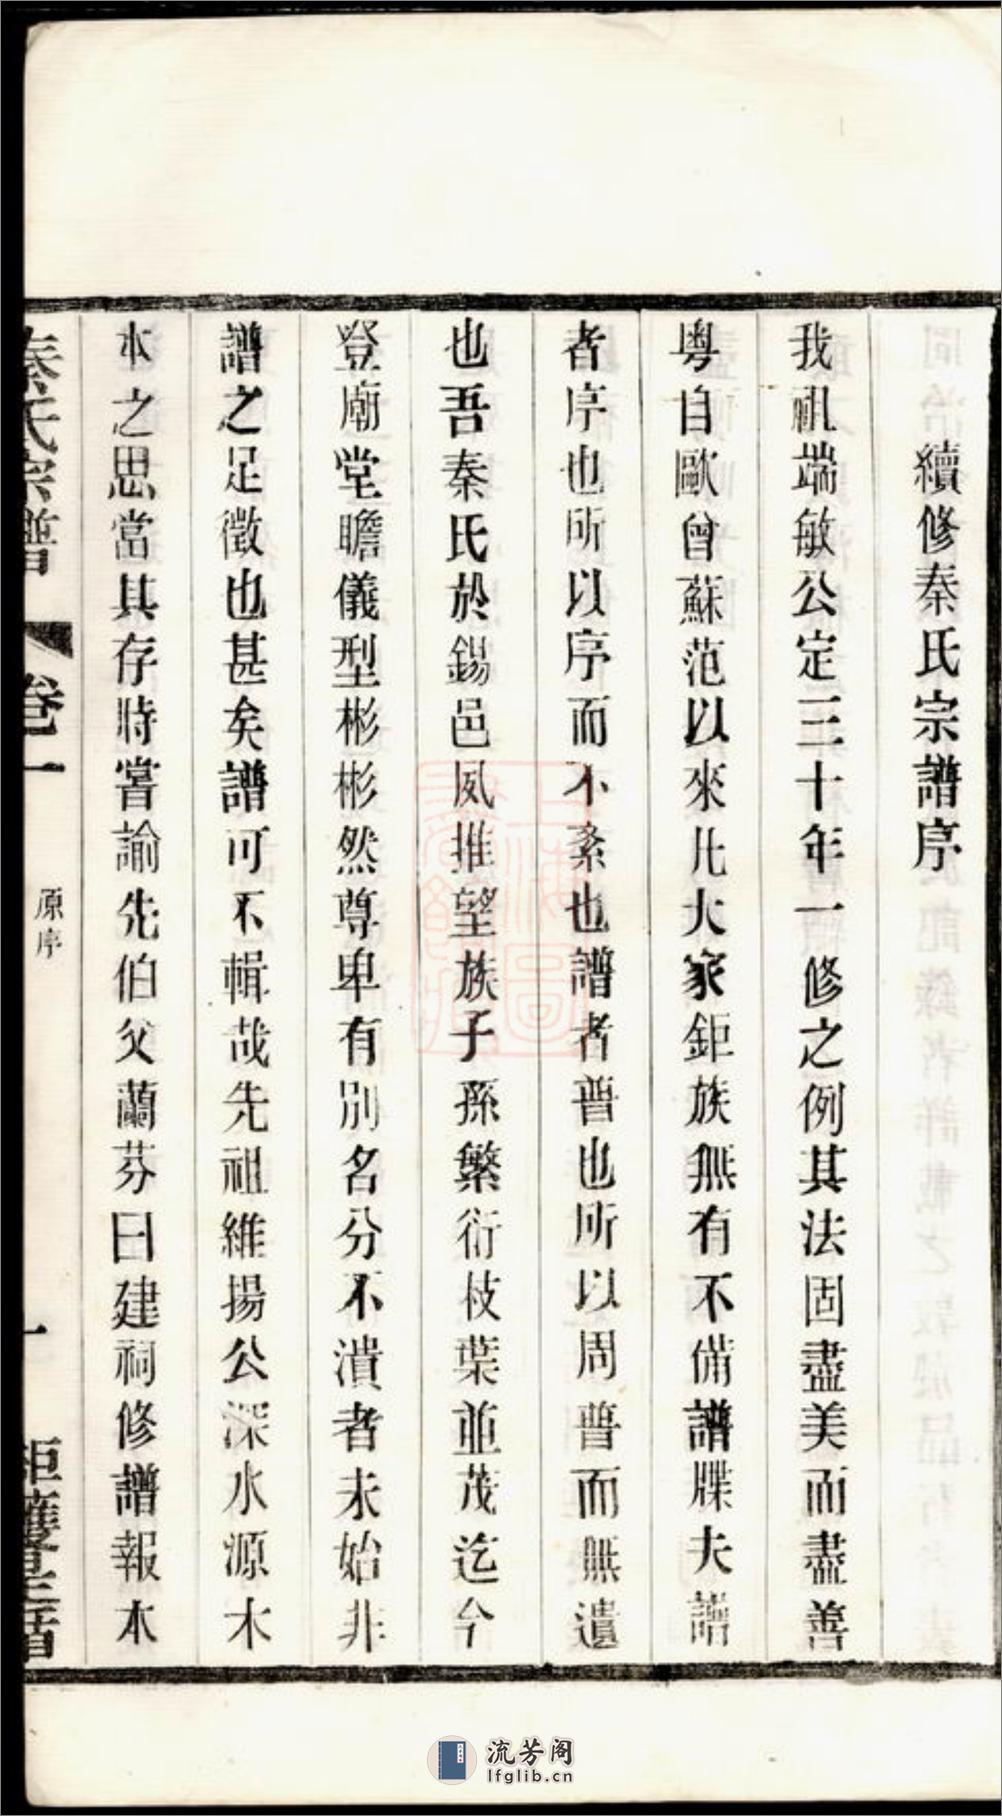 續修秦氏宗譜序
我祖端敏公定三十年一修之例其法固盡美而盡善
粵自歐曾蘇范以來凡大家鉅族無有不備譜牒夫譜
者序也所以序而不紊也譜者普也所以周普而無遺
也吾秦氏於錫邑夙推望族子孫繁衍枝葉並茂迄今
登廟堂瞻儀型彬彬然尊卑有別名分不潰者未始非
譜之足徵也甚矣譜可不輯哉先祖維揚公深水源木
本之思當其存時嘗諭先伯父蘭芬曰建祠修譜報本
秦氏宗譜
卷一
原序
一
上海圖書館藏
流芳阁
lfglib.cn